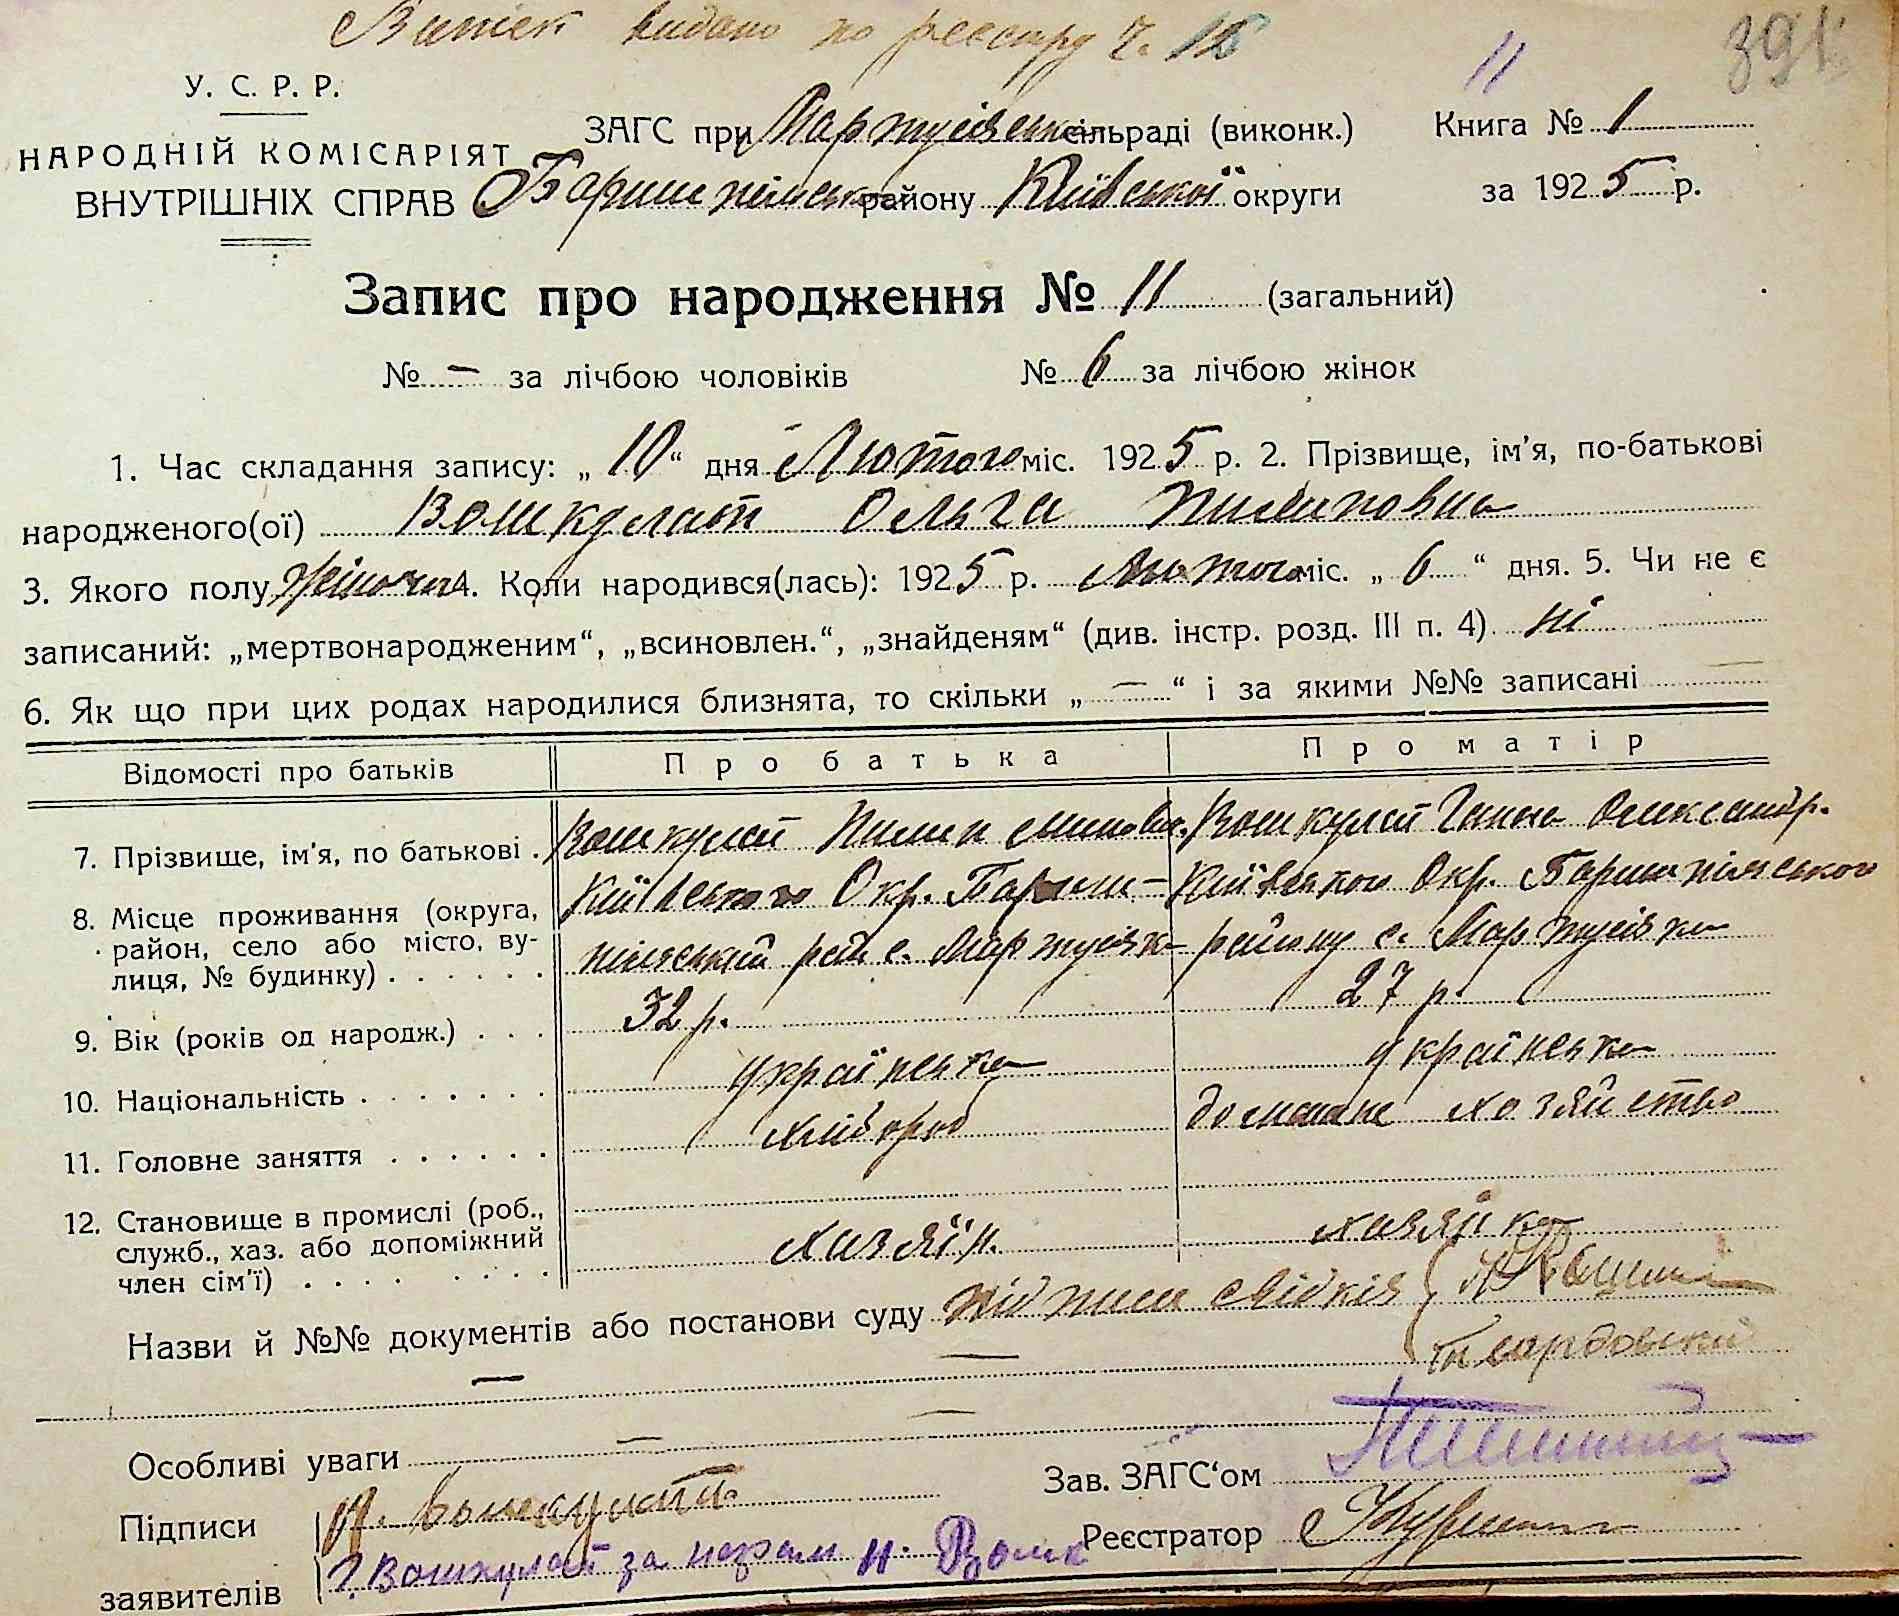 Витяг видано по реєстру ч. 12
11 391
У. С. Р. Р.
НАРОДНІЙ КОМІСАРІЯТ
ВНУТРІШНІХ СПРАВ
ЗАГС при Мартусівськ сільраді (виконк.) Книга № 1
Баришпільськ району Київської округи за 1925 р.
Запис про народження № 11 (загальний)
№ – за лічбою чоловіків № 6 за лічбою жінок
1. Час складання запису: „10“ дня Лютого міс. 1925 р. 2. Прізвище, ім'я, по-батькові
народженого(ої) Вошкулат Ольга Пилиповна
3. Якого полу жіноча 4. Коли народився(лась): 1925 р. Лютого міс. „6“ дня. 5. Чи не є
записаний: „мертвонародженим“, „всиновлен.“, „знайденям“ (див. інстр. розд. III п. 4) ні
6. Як що при цих родах народилися близнята, то скільки „–“ і за якими №№ записані –
Відомості про батьків Про батька Про матір
7. Прізвище, ім'я, по батькові . Вошкулат Пилип Вошкулат Ганна Олександр.
8. Місце проживання (округа, Київського Окр. Бариш- Київського Окр. Баришпільського
район, село або місто, ву- пільський рай с. Мартусівка району с. Мартусівка
лиця, № будинку) . . . . . .
9. Вік (років од народж.) . . . 32 р. 27 р.
10. Національність . . . . . . . українська українська
11. Головне заняття . . . . . . хлібороб домашнє хозяйство
12. Становище в промислі (роб.,
служб., хаз. або допоміжний хазяїн. хазяйка
член сім'ї) . . . . . . . .
Назви й №№ документів або постанови суду підписи свідків
Твардовский
Особливі уваги –
Зав. ЗАГС'ом
Підписи П. Вошкулат
Реєстратор
заявителів Г. Вошкулат за неграм П. Вошк